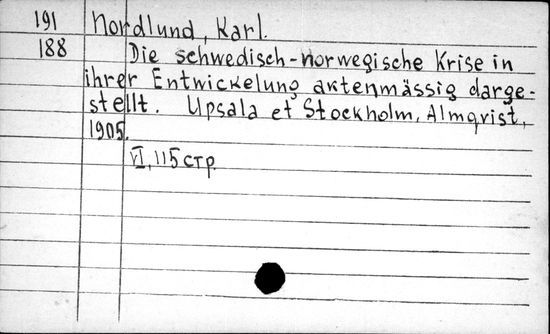 191 Nordlund, Karl.
188 Die schwedisch-norwegische Krise in
ihrer Entwickelung aktenmässig darge-
stellt. Upsala et Stockholm, Almqvist,
1905.
VI, 115 стр.